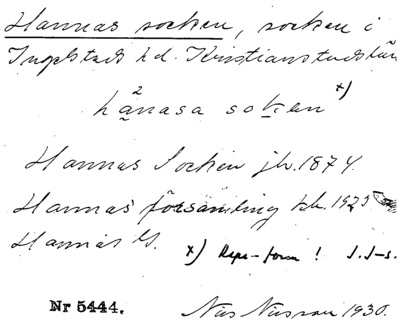 Hannas socken, socken i
Ingelstads hd. Kristianstads län
hanasa soken x)
Hannas Socken jb. 1874.
Hannas församling kb. 1925
Hannas G. x) Repr-form! J.J-s.
Nr 5444. Nils Nilsson 1930.